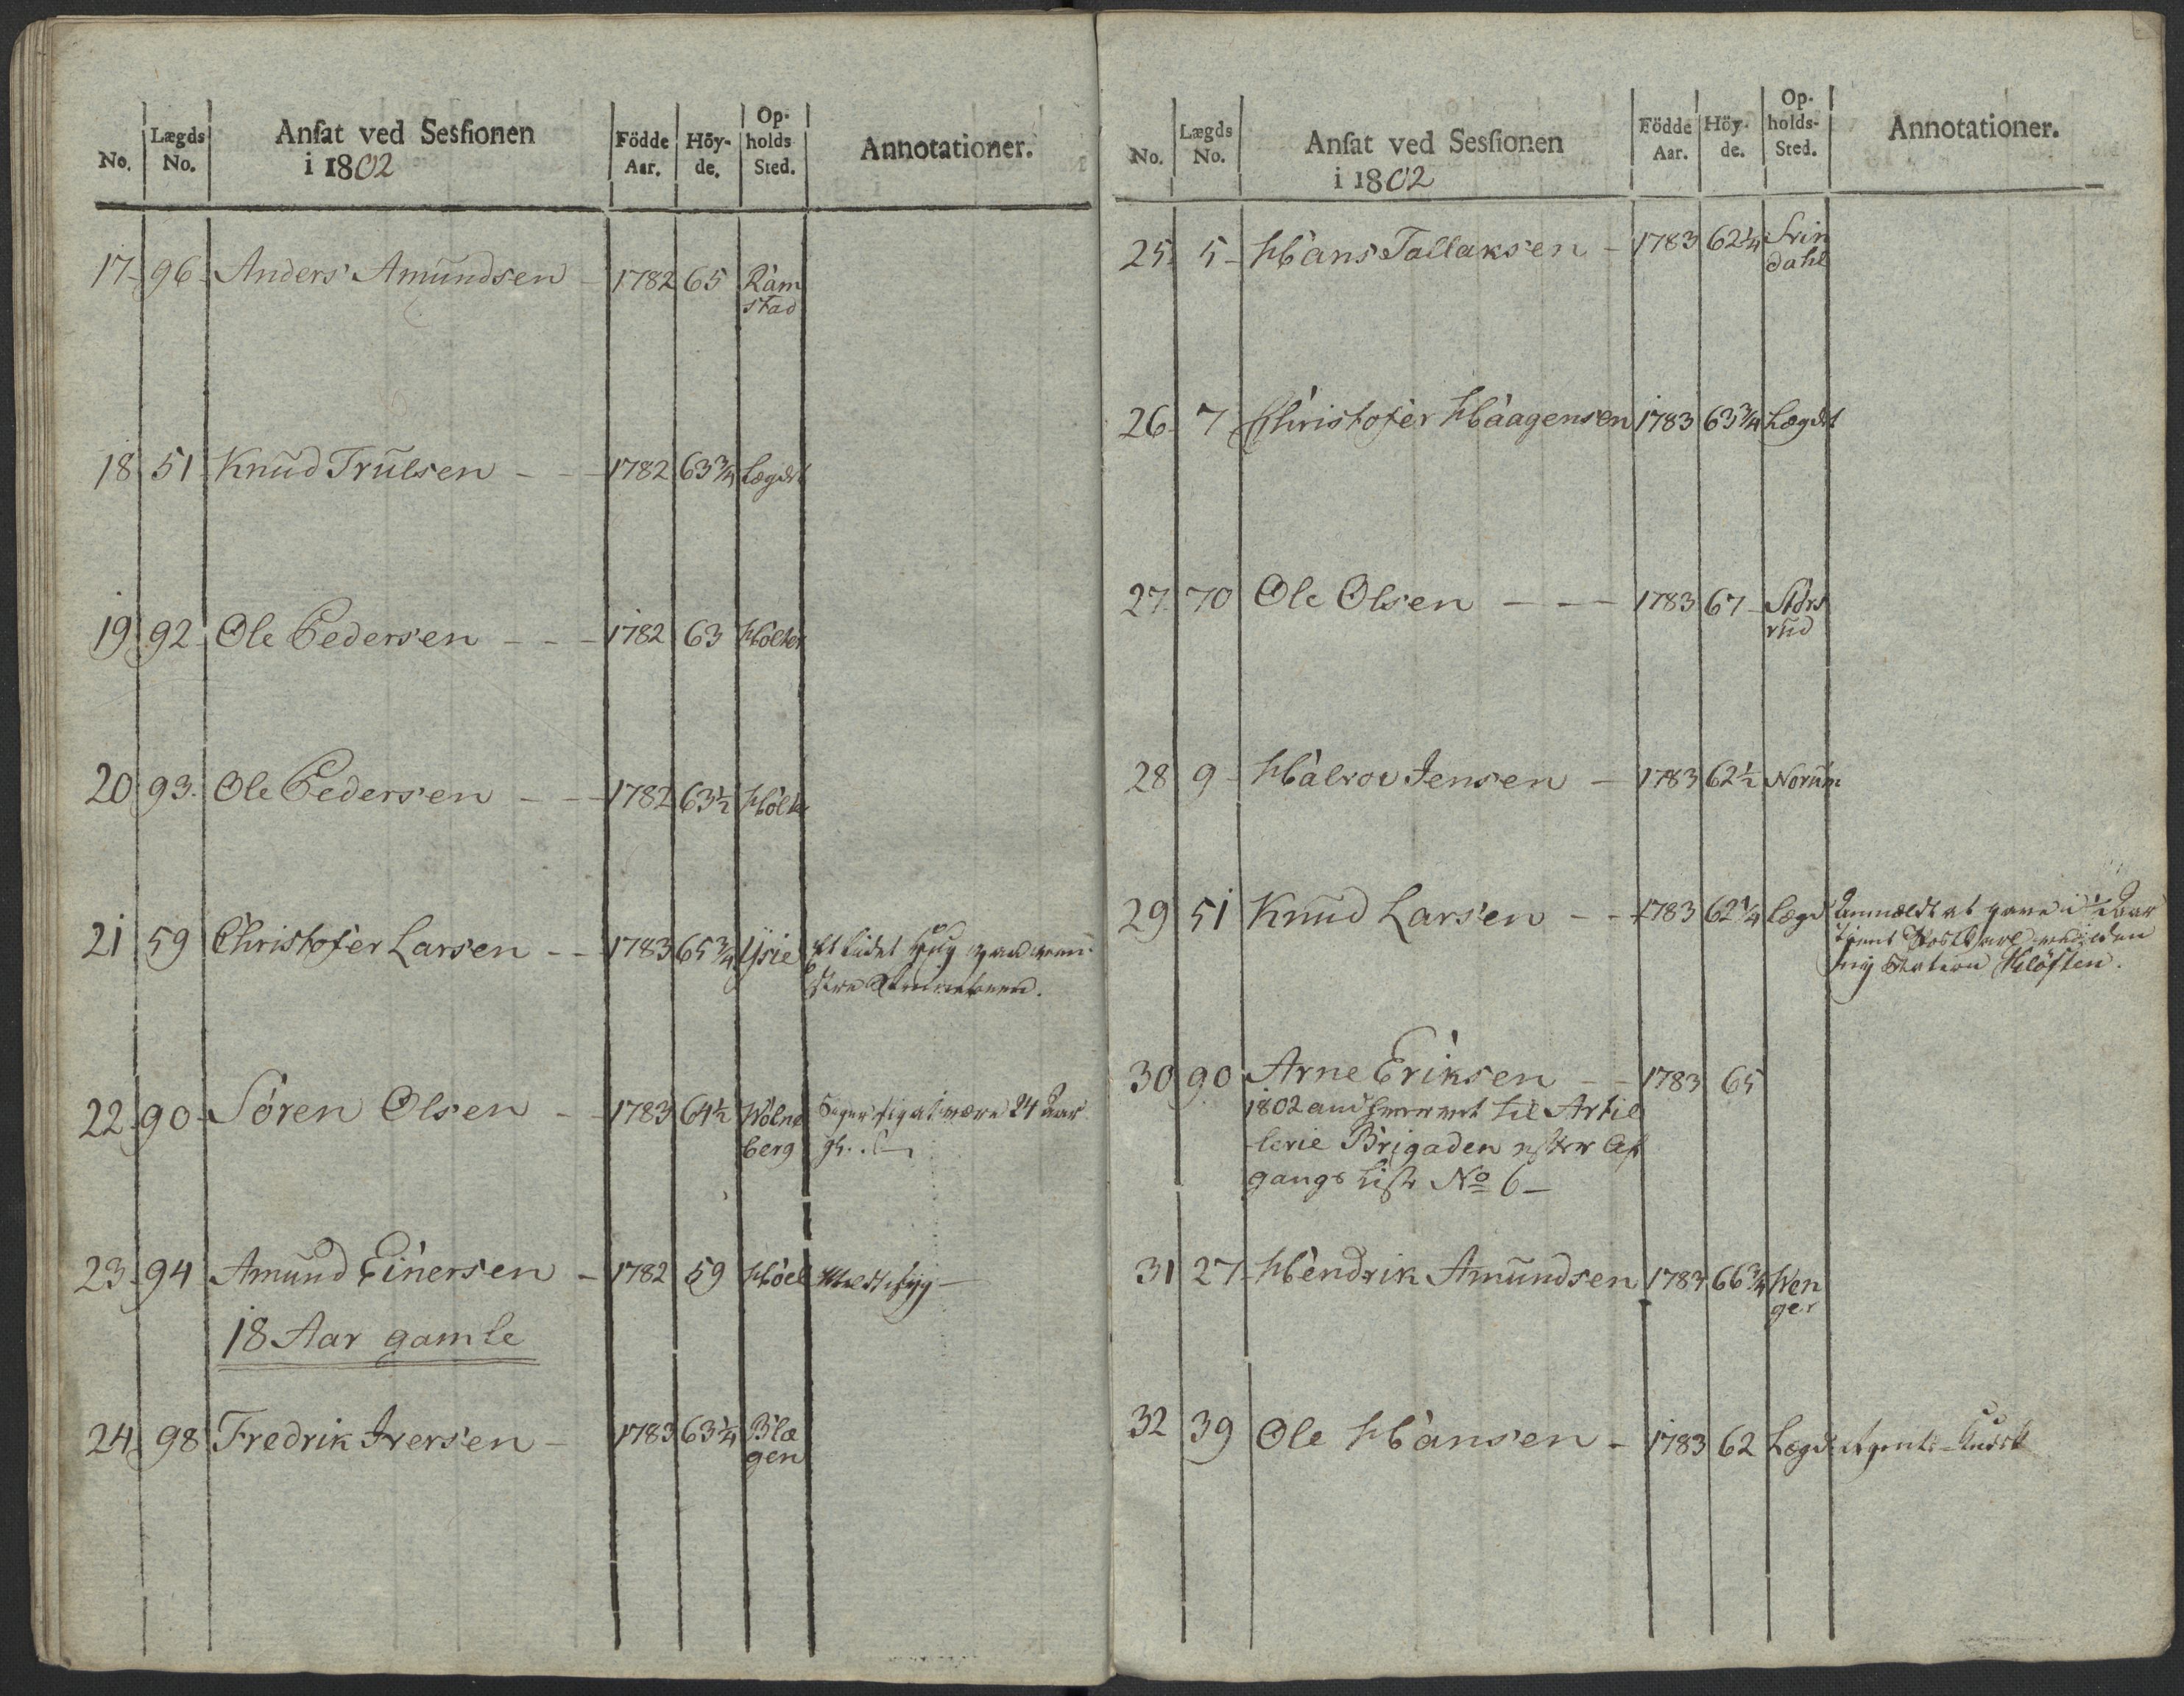 No. | Lægds No. | Ansat ved Sessionen i 1802 | Födde Aar. | Höy-de. | Op-holds Sted. | Annotationer.
17 - 96 - Anders Amundsen - 1782 65 Ram
stad
18 51 Knud Trulsen - - 1782 63 3/4 Lægdet
19 92 Ole Pedersen - - - 1782 63 Holter
20 93. Ole Pedersen - - - 1782 63 1/2 Holte
21 59 Christofer Larsen - - 1783 65 3/4 Ysie Et lidet hug paa ven-
stre
22 - 90 - Sören Olsen - - 1783 64 1/2 Wolne Seger sig at være 24 Aar
berg
23 - 94 Amund Einersen - 1782 59 Hoel
18 Aar gamle
24 98 Fredrik Iversen - 1783 63 1/4 Blæ
gen
No. | Lægds No. | Ansat ved Sessionen i 1802 | Födde Aar. | Höy-de. | Op-holds-Sted. | Annotationer.
25 5 - Hans Tollaksen - 1783 62 1/4 Frin
dahl
26 - 7 Christofer Haagensen 1783 63 3/4 Lægdet
27. 70 Ole Olsen - - - 1783 67 -
rud
28 9 - Halvov Jensen - 1783 62 1/2 Norum
29 51 Knud Larsen - - 1783 62 1/4 Lægd Anmeldt at have i 1 Aar
tient Postkarl ved den
ny Station Klöften.
30 90 Arne Eriksen - - 1783 65
1802 til Artil
lerie Brigaden efter Af
gangs Liste No 6 -
31 27 - Hendrik Amundsen 1783 66 3/4 Wen
ger
32 39 Ole Hansen - 1783 62 Lægd